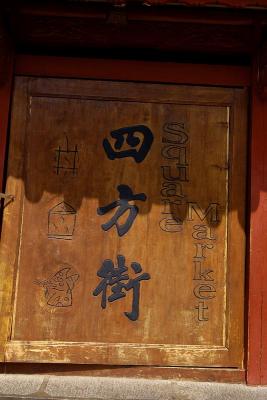 四方街
Square
Market